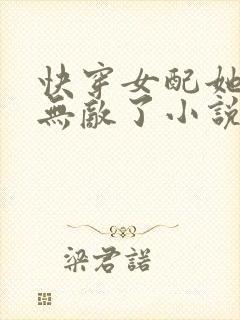 快穿女配她
無敵了小說
梁君諾